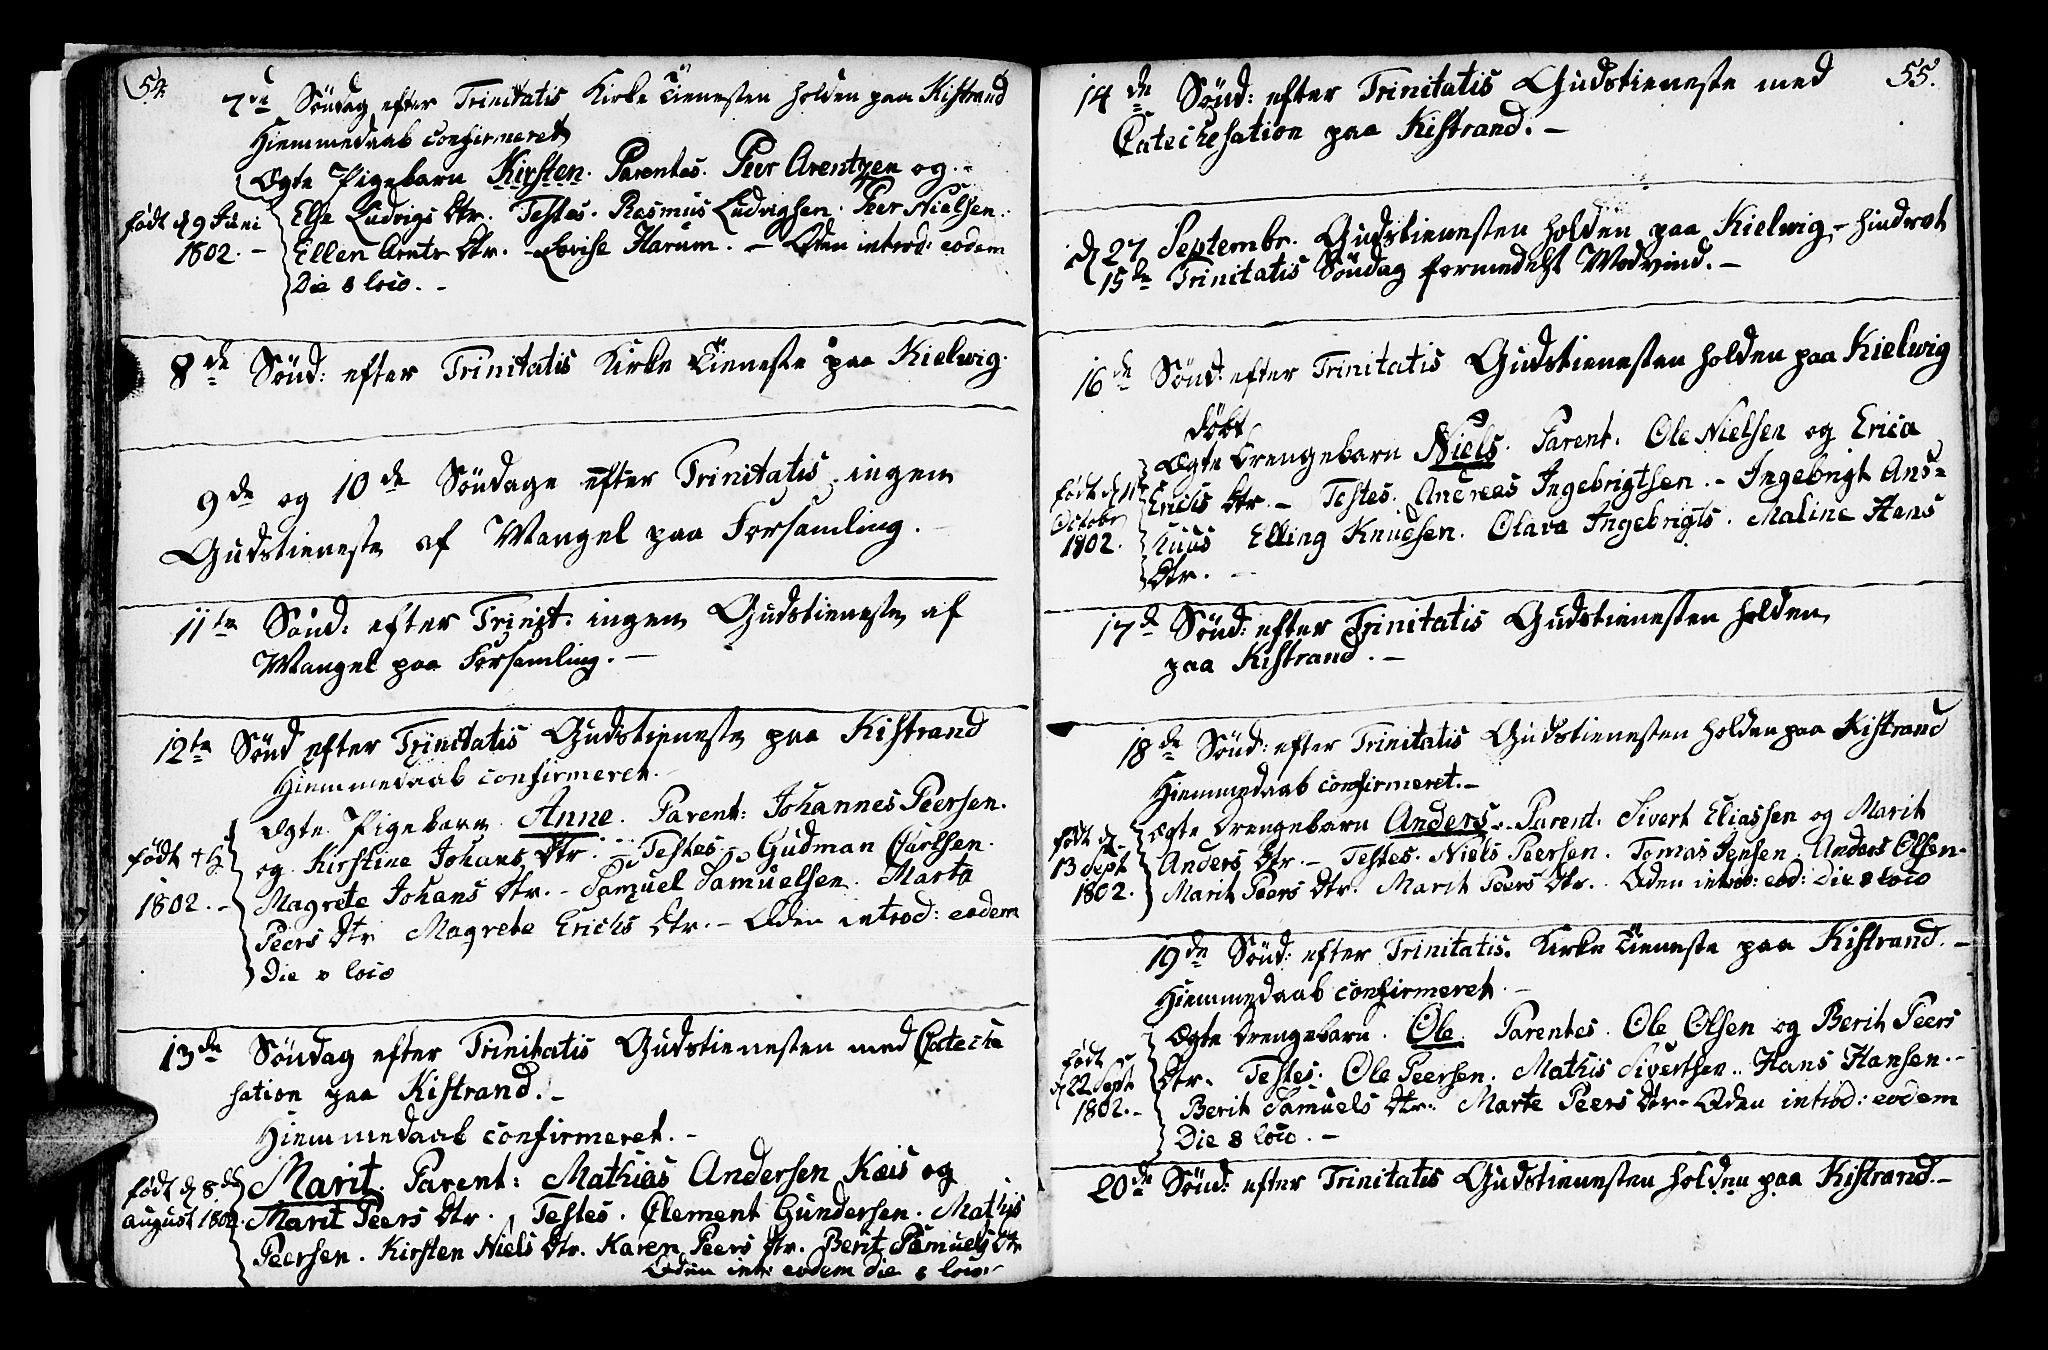 54.
7de Söndag efter Trinitatis Kirke Tienesten holden paa Kistrand
Hiemmedaab confirmeret
Ægte Pigebarn Kirsten. Parentes. Peer Arentzen og.-
født d 9 Juni
1802.-
Else Ludvigs Dtr. Testes. Rasmus Ludvigsen. Peer Nielsen.
Ellen Arnts Dtr. - Lovise Harum. - Oden introd: eodem
Die & loco. -
8de Sönd: efter Trinitatis Kirke Tieneste paa Kielwig.
9de og 10de Söndage efter Trinitatis ingen
Gudstieneste af Mangel paa Forsamling.
11te Sönd: efter Trinit: ingen Gudstieneste af
Mangel paa Forsamling. -
12te Sönd efter Trinitatis Gudstieneste paa Kistrand
Hiemmedaab confirmeret.
Ægte Pigebarn Anne. Parent: Johannes Peersen.
født
1802.-
og Kirstine Johans Dtr. Testes. Gudman Carlsen.
Magrete Johans Dtr. - Samuel Samuelsen. Marta
Peers Dtr Magrete Erichs Dtr. - Oden introd: eodem
Die & loco
13de Söndag efter Trinitatis Gudstienesten med Cateche
sation paa Kistrand. -
Hiemmedaab confirmeret. -
født d 8de
august 1802.
Marit. Parent: Mathias Andersen Kæis og
Marit Peers Dtr. Testes. Clement Gundersen. Mathis
Peersen. Kirsten Niels Dtr. Karen Peers Dtr. Berit Samuels Dtr
Oden int: eodem die & loco.
55.
14de Sönd: efter Trinitatis Gudstieneste med
Catechesation paa Kistrand. -
d 27 Septembr. Gudstienesten holden paa Kielwig, - hindret
15de Trinitatis Söndag formedelst Modvind. -
16de Sönd: efter Trinitatis Gudstienesten holden paa Kielwig
døbt
Ægte Drengebarn Niels. Parent. Ole Nielsen og Erica
født d 1
Octobr
1802.
Erichs Dtr. - Testes. Andreas Ingebrigtsen. - Ingebrigt And=
Elling Knudsen. Olava Ingebrigts. Maline Hans
Dtr. -
17d Sönd: efter Trinitatis Gudstienesten holden
paa Kistrand. -
18de Sönd: efter Trinitatis Gudstienesten holden paa Kistrand
Hiemmedaab confirmeret. -
Ægte Drengebarn Anders. Parent. Sivert Eliassen og Marit
født d.
13 Sept
1802.
Anders Dtr. - Testes. Niels Peersen. Tomas Jensen. Anders Olsen.
Marit Peers Dtr. Marit Peers Dtr. Oden introd: eod: Die & loco
19de Sönd: efter Trinitatis. Kirke Tieneste paa Kistrand. -
Hiemmedaab confirmeret. -
Ægte Drengebarn. Ole. Parentes. Ole Olsen og Berit Peers
født
d 22 Sept
1802. -
Dtr. Testes. Ole Peersen. Mathis Sivertsen. Hans Hansen. -
Berit Samuels Dtr. Marte Peers Dtr. Oden introd: eodem
Die & loco. -
20de Sönd: efter Trinitatis Gudstienesten holden paa Kistrand. -